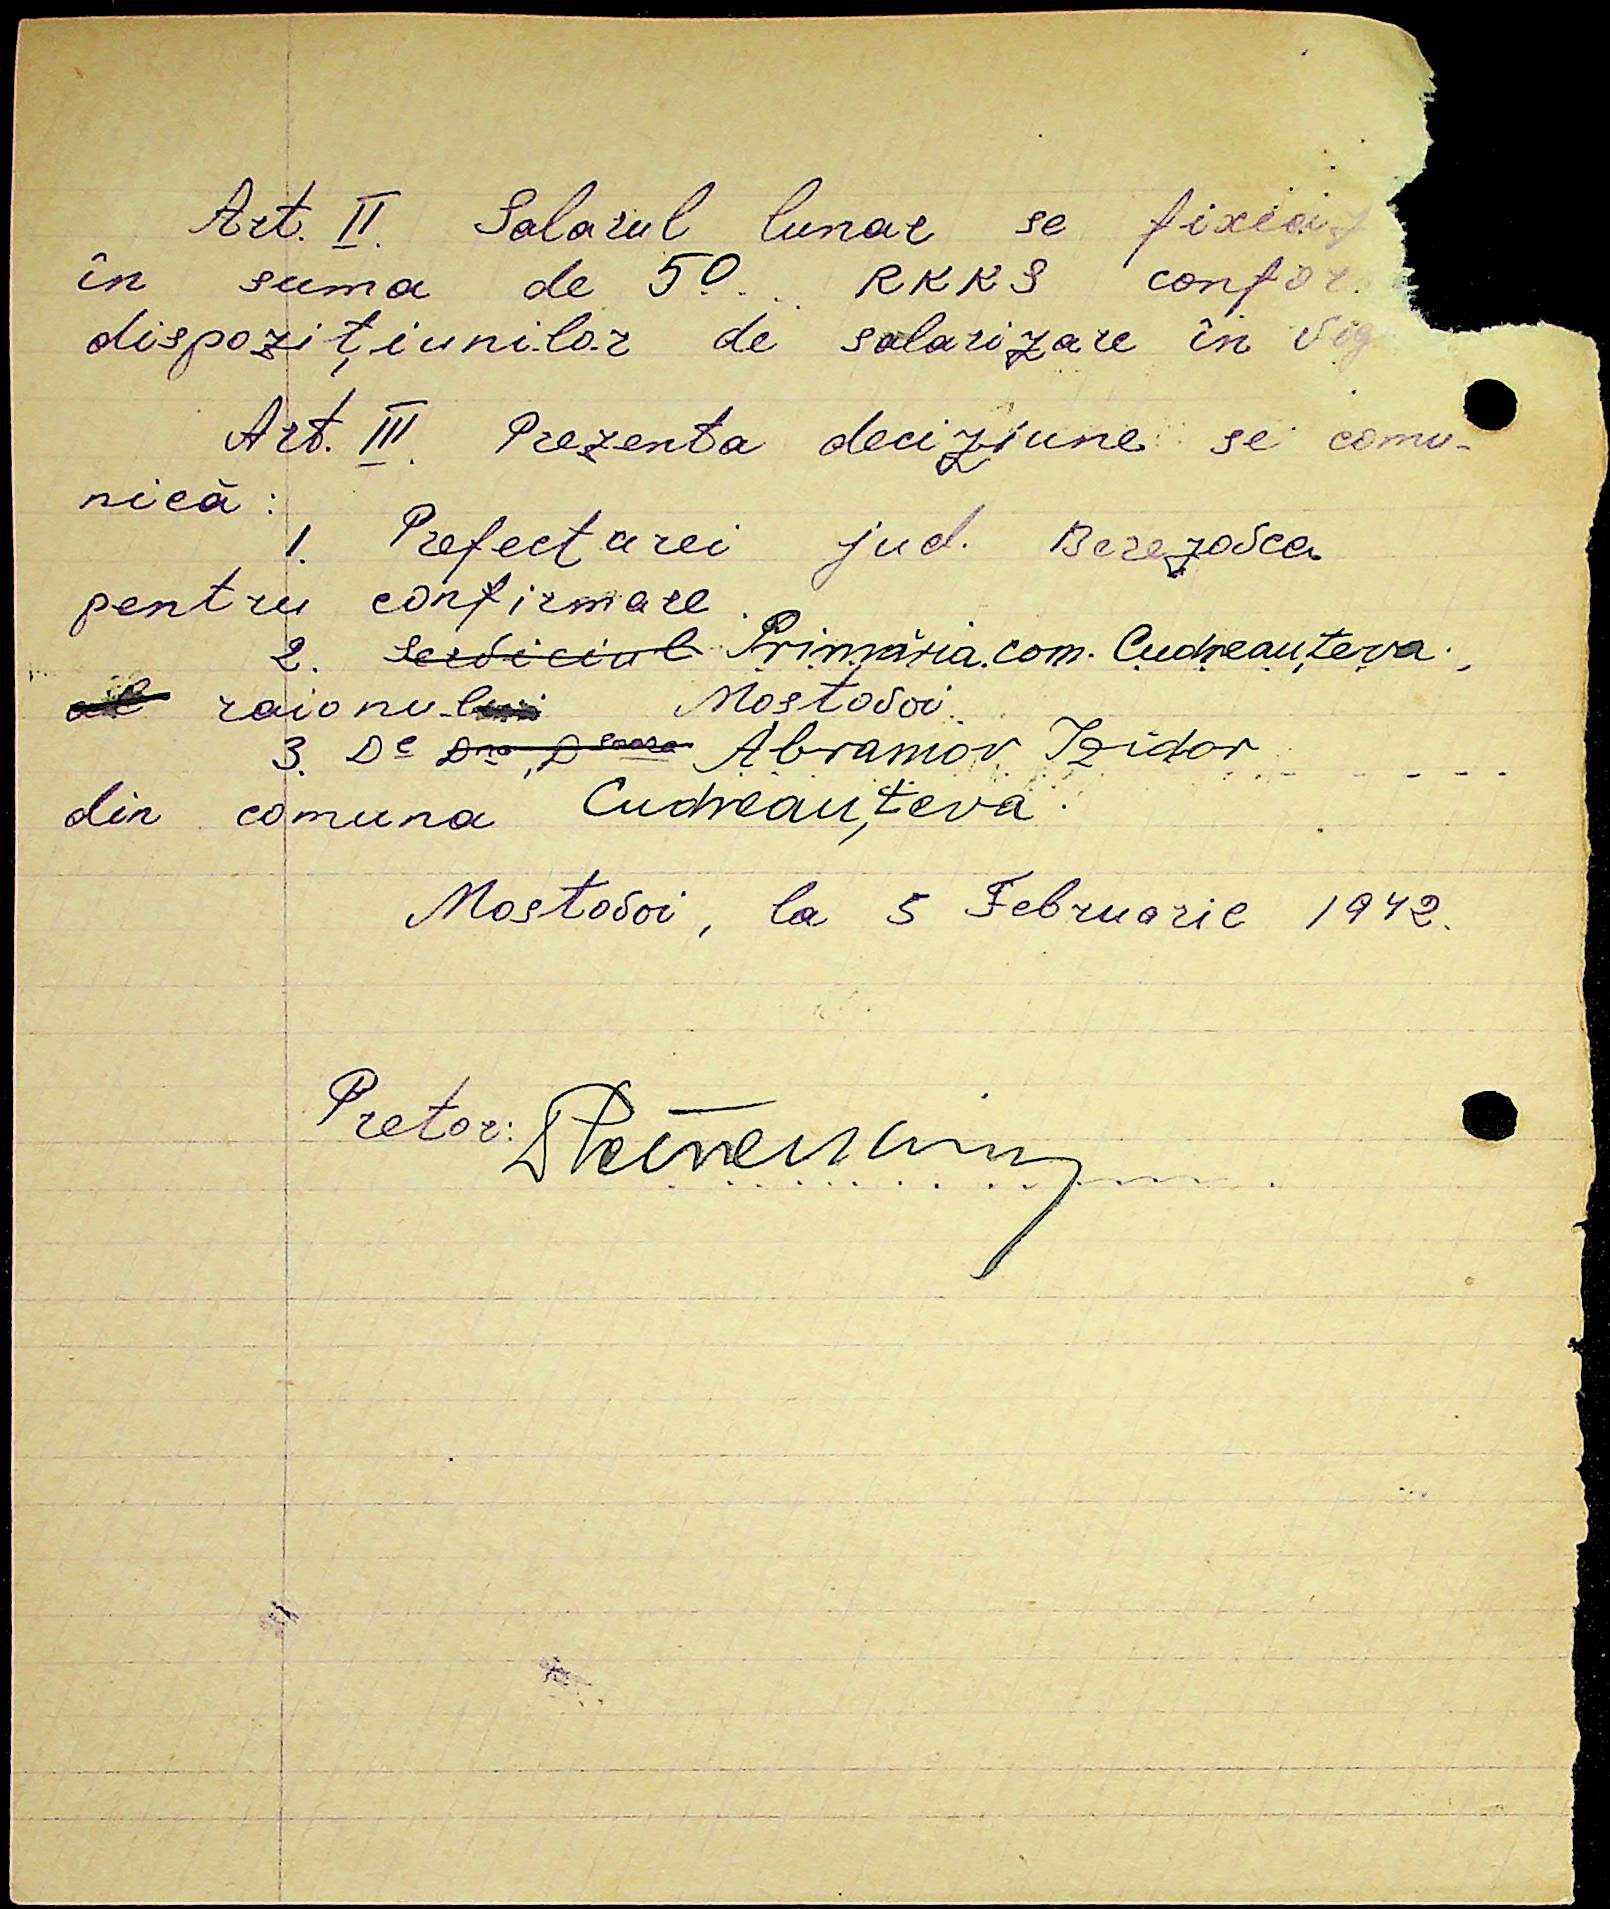 Art. II. Salarul lunar se fixează
în suma de 50 RKKS confor
dispozițiunilor de salarizare în vig
Art. III. Prezenta deciziune se comu-
nică:
1. Prefecturei jud. Berezovca
pentru confirmare.
2. Serviciul Primăria com. Cudreauțeva,
al raionului Mostovoi
3. Dl Dna, Dșoara Abramov Izidor
din comuna Cudreauțeva.
Mostovoi, la 5 Februarie 1942.
Pretor: